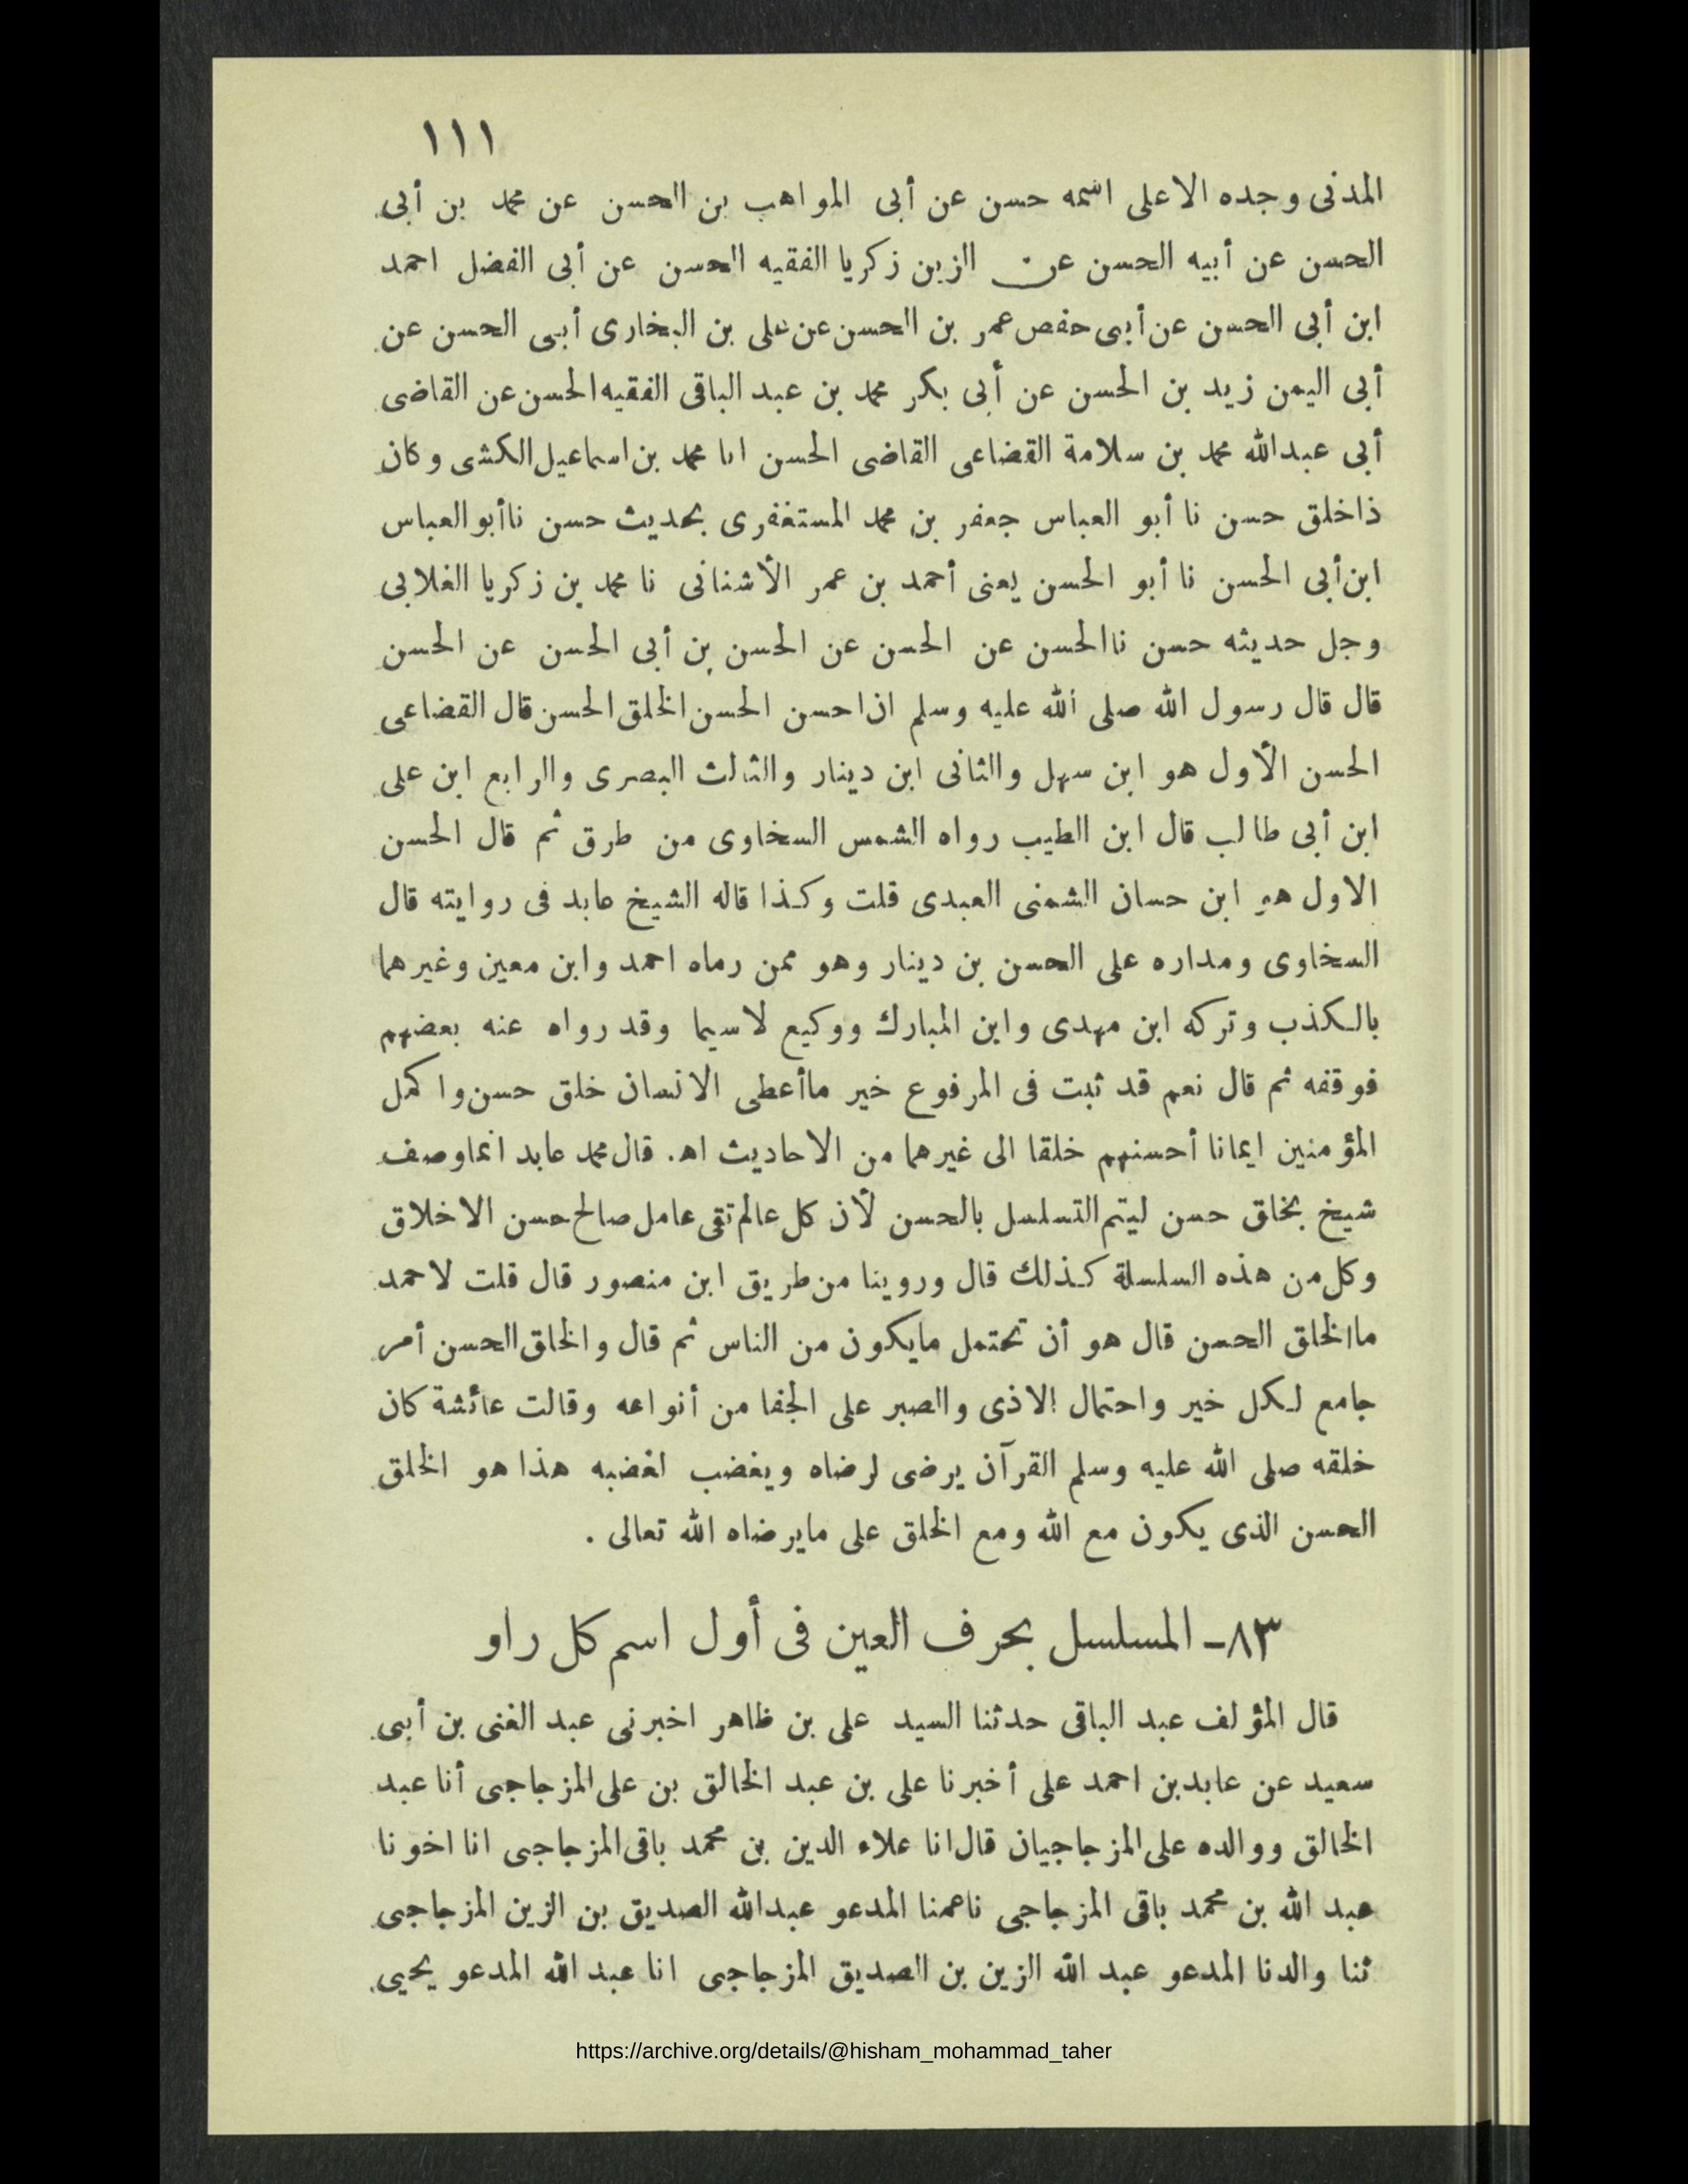 ١١١
المدنى وجده الاعلى اسمه حسن عن أبى المواهب بن الحسن عن محمد بن أبى
الحسن عن أبيه الحسن عن الزين زكريا الفقيه الحسن عن أبى الفضل احمد
ابن أبى الحسن عن أبى حفص عمر بن الحسن عن على بن البخارى أبى الحسن عن
أبى اليمن زيد بن الحسن عن أبى بكر محمد بن عبد الباقى الفقيه الحسن عن القاضى
أبى عبدالله محمد بن سلامة القضاعى القاضى الحسن انا محمد بن اسماعيل الكشى وكان
ذاخلق حسن نا أبو العباس جعفر بن محمد المستغفرى بحديث حسن نا أبو العباس
ابن أبى الحسن نا أبو الحسن يعنى أحمد بن عمر الأشنانى نا محمد بن زكريا الغلابى
وجل حديثه حسن نا الحسن عن الحسن عن الحسن بن أبى الحسن عن الحسن
قال قال رسول الله صلى الله عليه وسلم ان احسن الحسن الخلق الحسن قال القضاعى
الحسن الأول هو ابن سهل والثانى ابن دينار والثالث البصرى والرابع ابن على
ابن أبى طالب قال ابن الطيب رواه الشمس السخاوى من طرق ثم قال الحسن
الاول هو ابن حسان الشمنى العبدى قلت وكذا قاله الشيخ عابد فى روايته قال
السخاوى ومداره على الحسن بن دينار وهو ممن رماه احمد وابن معين وغيرهما
بالكذب وتركه ابن مهدى وابن المبارك ووكيع لاسيما وقد رواه عنه بعضهم
فوقفه ثم قال نعم قد ثبت فى المرفوع خير ماأعطى الانسان خلق حسن واكمل
المؤمنين ايمانا أحسنهم خلقا الى غيرهما من الاحاديث اه. قال محمد عابد انما وصف
شيخ بخلق حسن ليتم التسلسل بالحسن لأن كل عالم تقى عامل صالح حسن الاخلاق
وكل من هذه السلسلة كذلك قال وروينا من طريق ابن منصور قال قلت لاحمد
ماالخلق الحسن قال هو أن تحتمل مايكون من الناس ثم قال والخلق الحسن أمر
جامع لكل خير واحتمال الاذى والصبر على الجفا من أنواعه وقالت عائشة كان
خلقه صلى الله عليه وسلم القرآن يرضى لرضاه ويغضب لغضبه هذا هو الخلق
الحسن الذى يكون مع الله ومع الخلق على مايرضاه الله تعالى .
٨٣ـ المسلسل بحرف العين فى أول اسم كل راو
قال المؤلف عبد الباقى حدثنا السيد على بن ظاهر اخبرنى عبد الغنى بن أبى
سعيد عن عابد بن احمد على أخبرنا على بن عبد الخالق بن على المزجاجى أنا عبد
الخالق ووالده على المزجاجيان قال انا علاء الدين بن محمد باقى المزجاجى انا اخونا
عبد الله بن محمد باقى المزجاجى نا عمنا المدعو عبدالله الصديق بن الزين المزجاجى
ثنا والدنا المدعو عبد الله الزين بن الصديق المزجاجى انا عبد الله المدعو يحيى
https://archive.org/details/@hisham_mohammad_taher